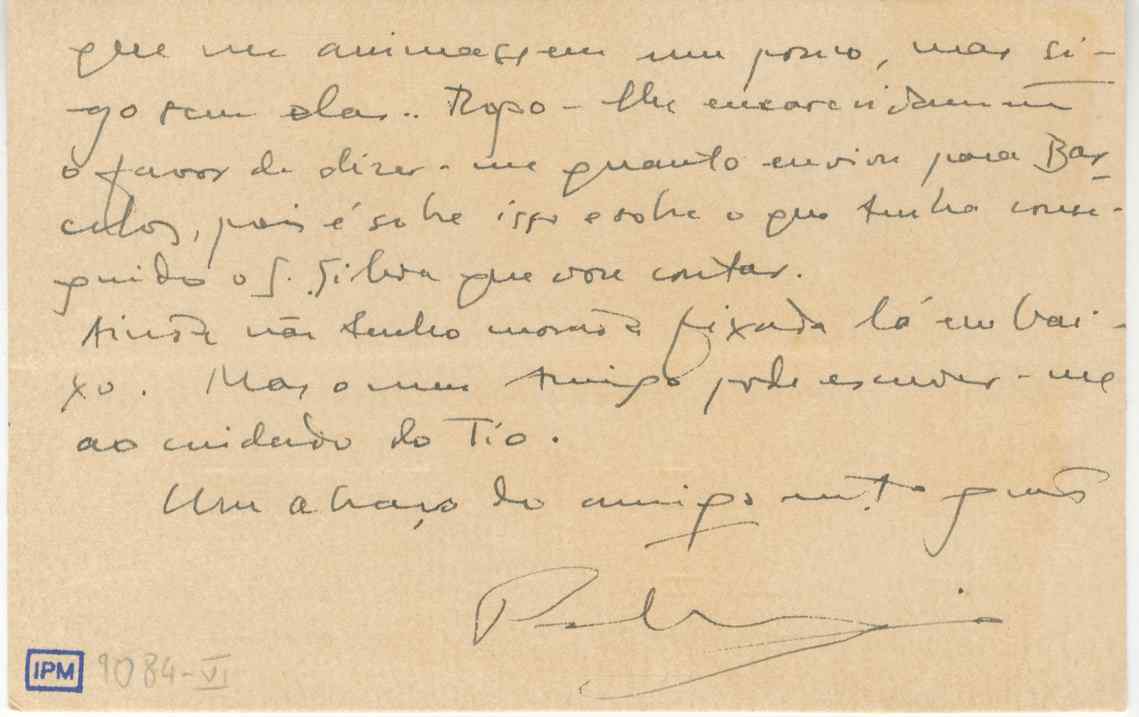 que me animassem um pouco, mas si-
-go sem elas.. Rogo-lhe encarecidamte
o favor de dizer-me quanto enviou para Bar
celos, pois é sobre isso e sobre o que tenha conse-
guido o S. Silva que vou contar.
Ainda não tenho morada fixada lá em bai-
xo. Mas o meu Amigo pode escrever-me
ao cuidado do Tio.
Um abraço do amigo mto grato
IPM 9084-VI